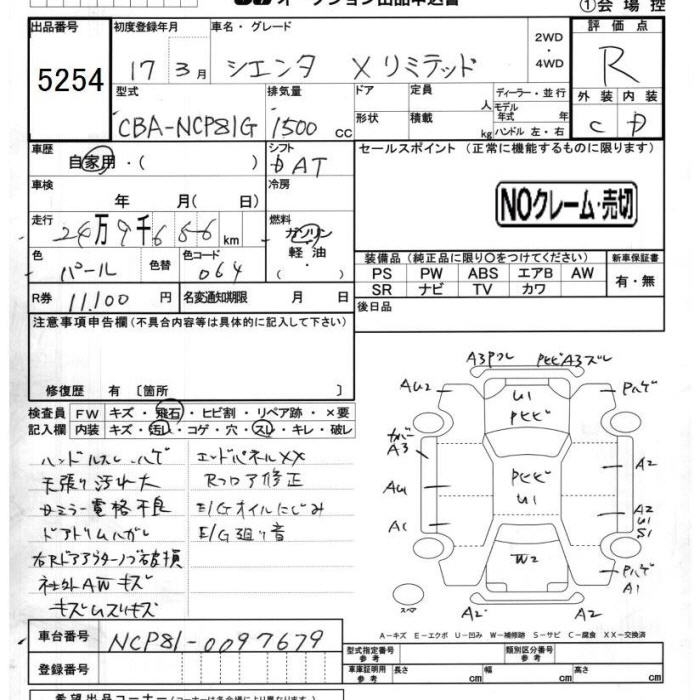 オークション出品申込書
①会場控
出品番号
5254
初度登録年月
17 3月
車名・グレード
シエンタ Xリミテッド
2WD
・
4WD
評価点
R
外装 内装
C D
型式
CBA-NCP81G
排気量
1500 cc
ドア
形状
定員 人
積載 kg
ディーラー・並行
モデル
年式 年
ハンドル 左・右
車歴
自家用・( )
シフト
AT
セールスポイント (正常に機能するものに限ります)
NOクレーム・売切
車検
年 月( 日)
冷房
走行
24万9千656km
燃料
ガソリン
軽油
( )
色
パール
色替
色コード
064
装備品(純正品に限り○をつけてください)
新車保証書
PS PW ABS エアB AW
SR ナビ TV カワ
有・無
R券
11,100円
名変通知期限 月 日
後日品
注意事項申告欄(不具合内容等は具体的に記入して下さい)
修復歴 有 〔箇所 〕
検査員
記入欄
FW キズ・飛石・ヒビ割・リペア跡・×要
内装 キズ・汚レ・コゲ・穴・スレ・キレ・破レ
ハンドルスレ ハゲ
エンドパネルXX
天張り汚れ大
Rフロア修正
サミラー電格不良
E/Gオイルにじみ
ドアトリムハガレ
E/G廻り音
社外AWキズ
A3
U1
AU2
Pハゲ
A3
A2
AU1
U1
A2
U1
S1
A1
W2
Pハゲ
A1
スペア
A2
A2
A-キズ E-エクボ U-凹み W-補修跡 S-サビ C-腐食 XX-交換済
車台番号
NCP81-0097679
登録番号
型式指定番号
参考
類別区分番号
参考
車庫証明用
参考
長さ cm
幅 cm
高さ cm
希望出品コーナー(コーナーは各会場により異なります)